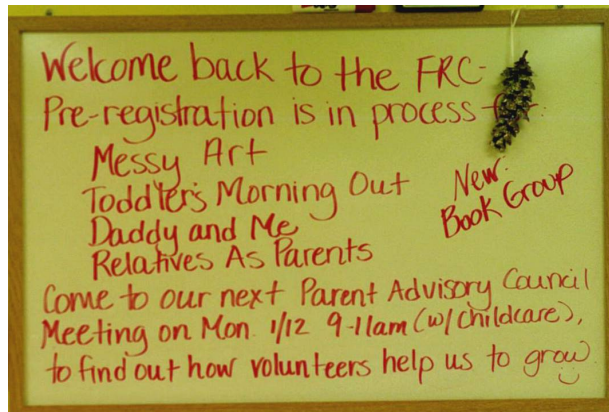 Welcome back to the FRC-
Pre-registration is in process for:
Messy Art
Toddler's Morning Out
Daddy and Me
Relatives As Parents
New:
Book Group
Come to our next Parent Advisory Council
Meeting on Mon. 1/12 9-11am (w/childcare),
to find out how volunteers help us to grow